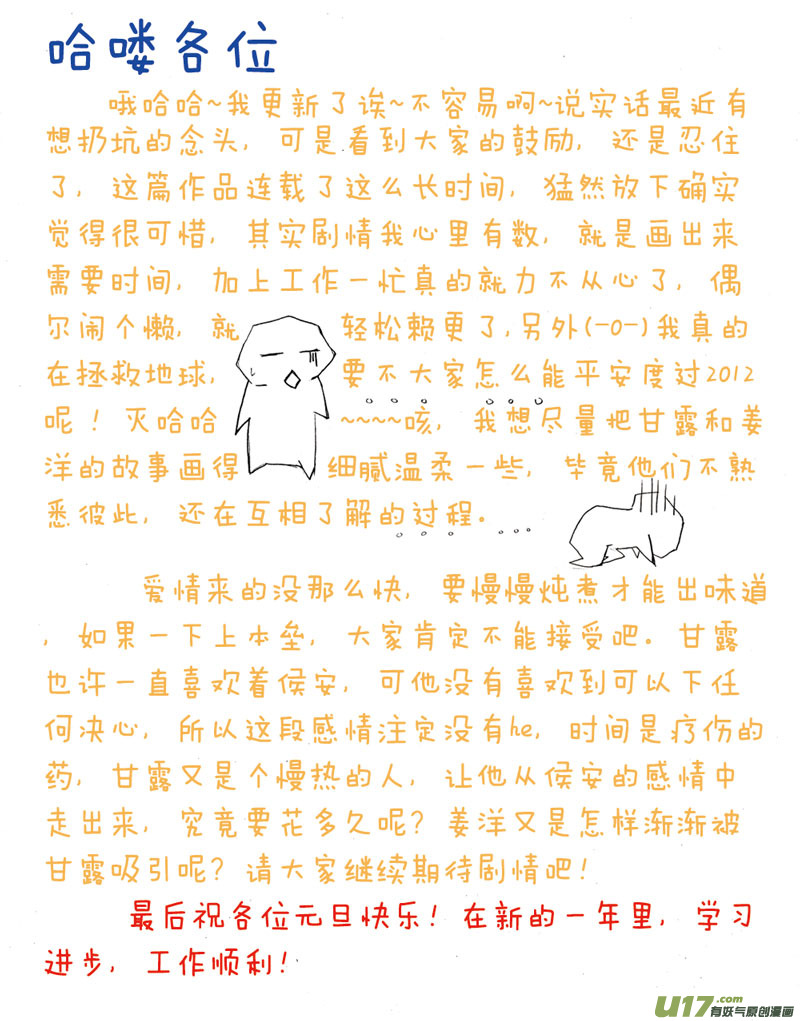 哈喽各位
哦哈哈~我更新了诶~不容易啊~说实话最近有
想扔坑的念头，可是看到大家的鼓励，还是忍住
了，这篇作品连载了这么长时间，猛然放下确实
觉得很可惜，其实剧情我心里有数，就是画出来
需要时间，加上工作一忙真的就力不从心了，偶
尔闹个懒，就轻松赖更了,另外(-o-)我真的
在拯救地球，要不大家怎么能平安度过2012
呢！灭哈哈~~~~咳，我想尽量把甘露和姜
洋的故事画得细腻温柔一些，毕竟他们不熟
悉彼此，还在互相了解的过程。
爱情来的没那么快，要慢慢炖煮才能出味道
，如果一下上本垒，大家肯定不能接受吧。甘露
也许一直喜欢着侯安，可他没有喜欢到可以下任
何决心，所以这段感情注定没有he，时间是疗伤的
药，甘露又是个慢热的人，让他从侯安的感情中
走出来，究竟要花多久呢？姜洋又是怎样渐渐被
甘露吸引呢？请大家继续期待剧情吧！
最后祝各位元旦快乐！在新的一年里，学习
进步，工作顺利！
U17.com
有妖气原创漫画